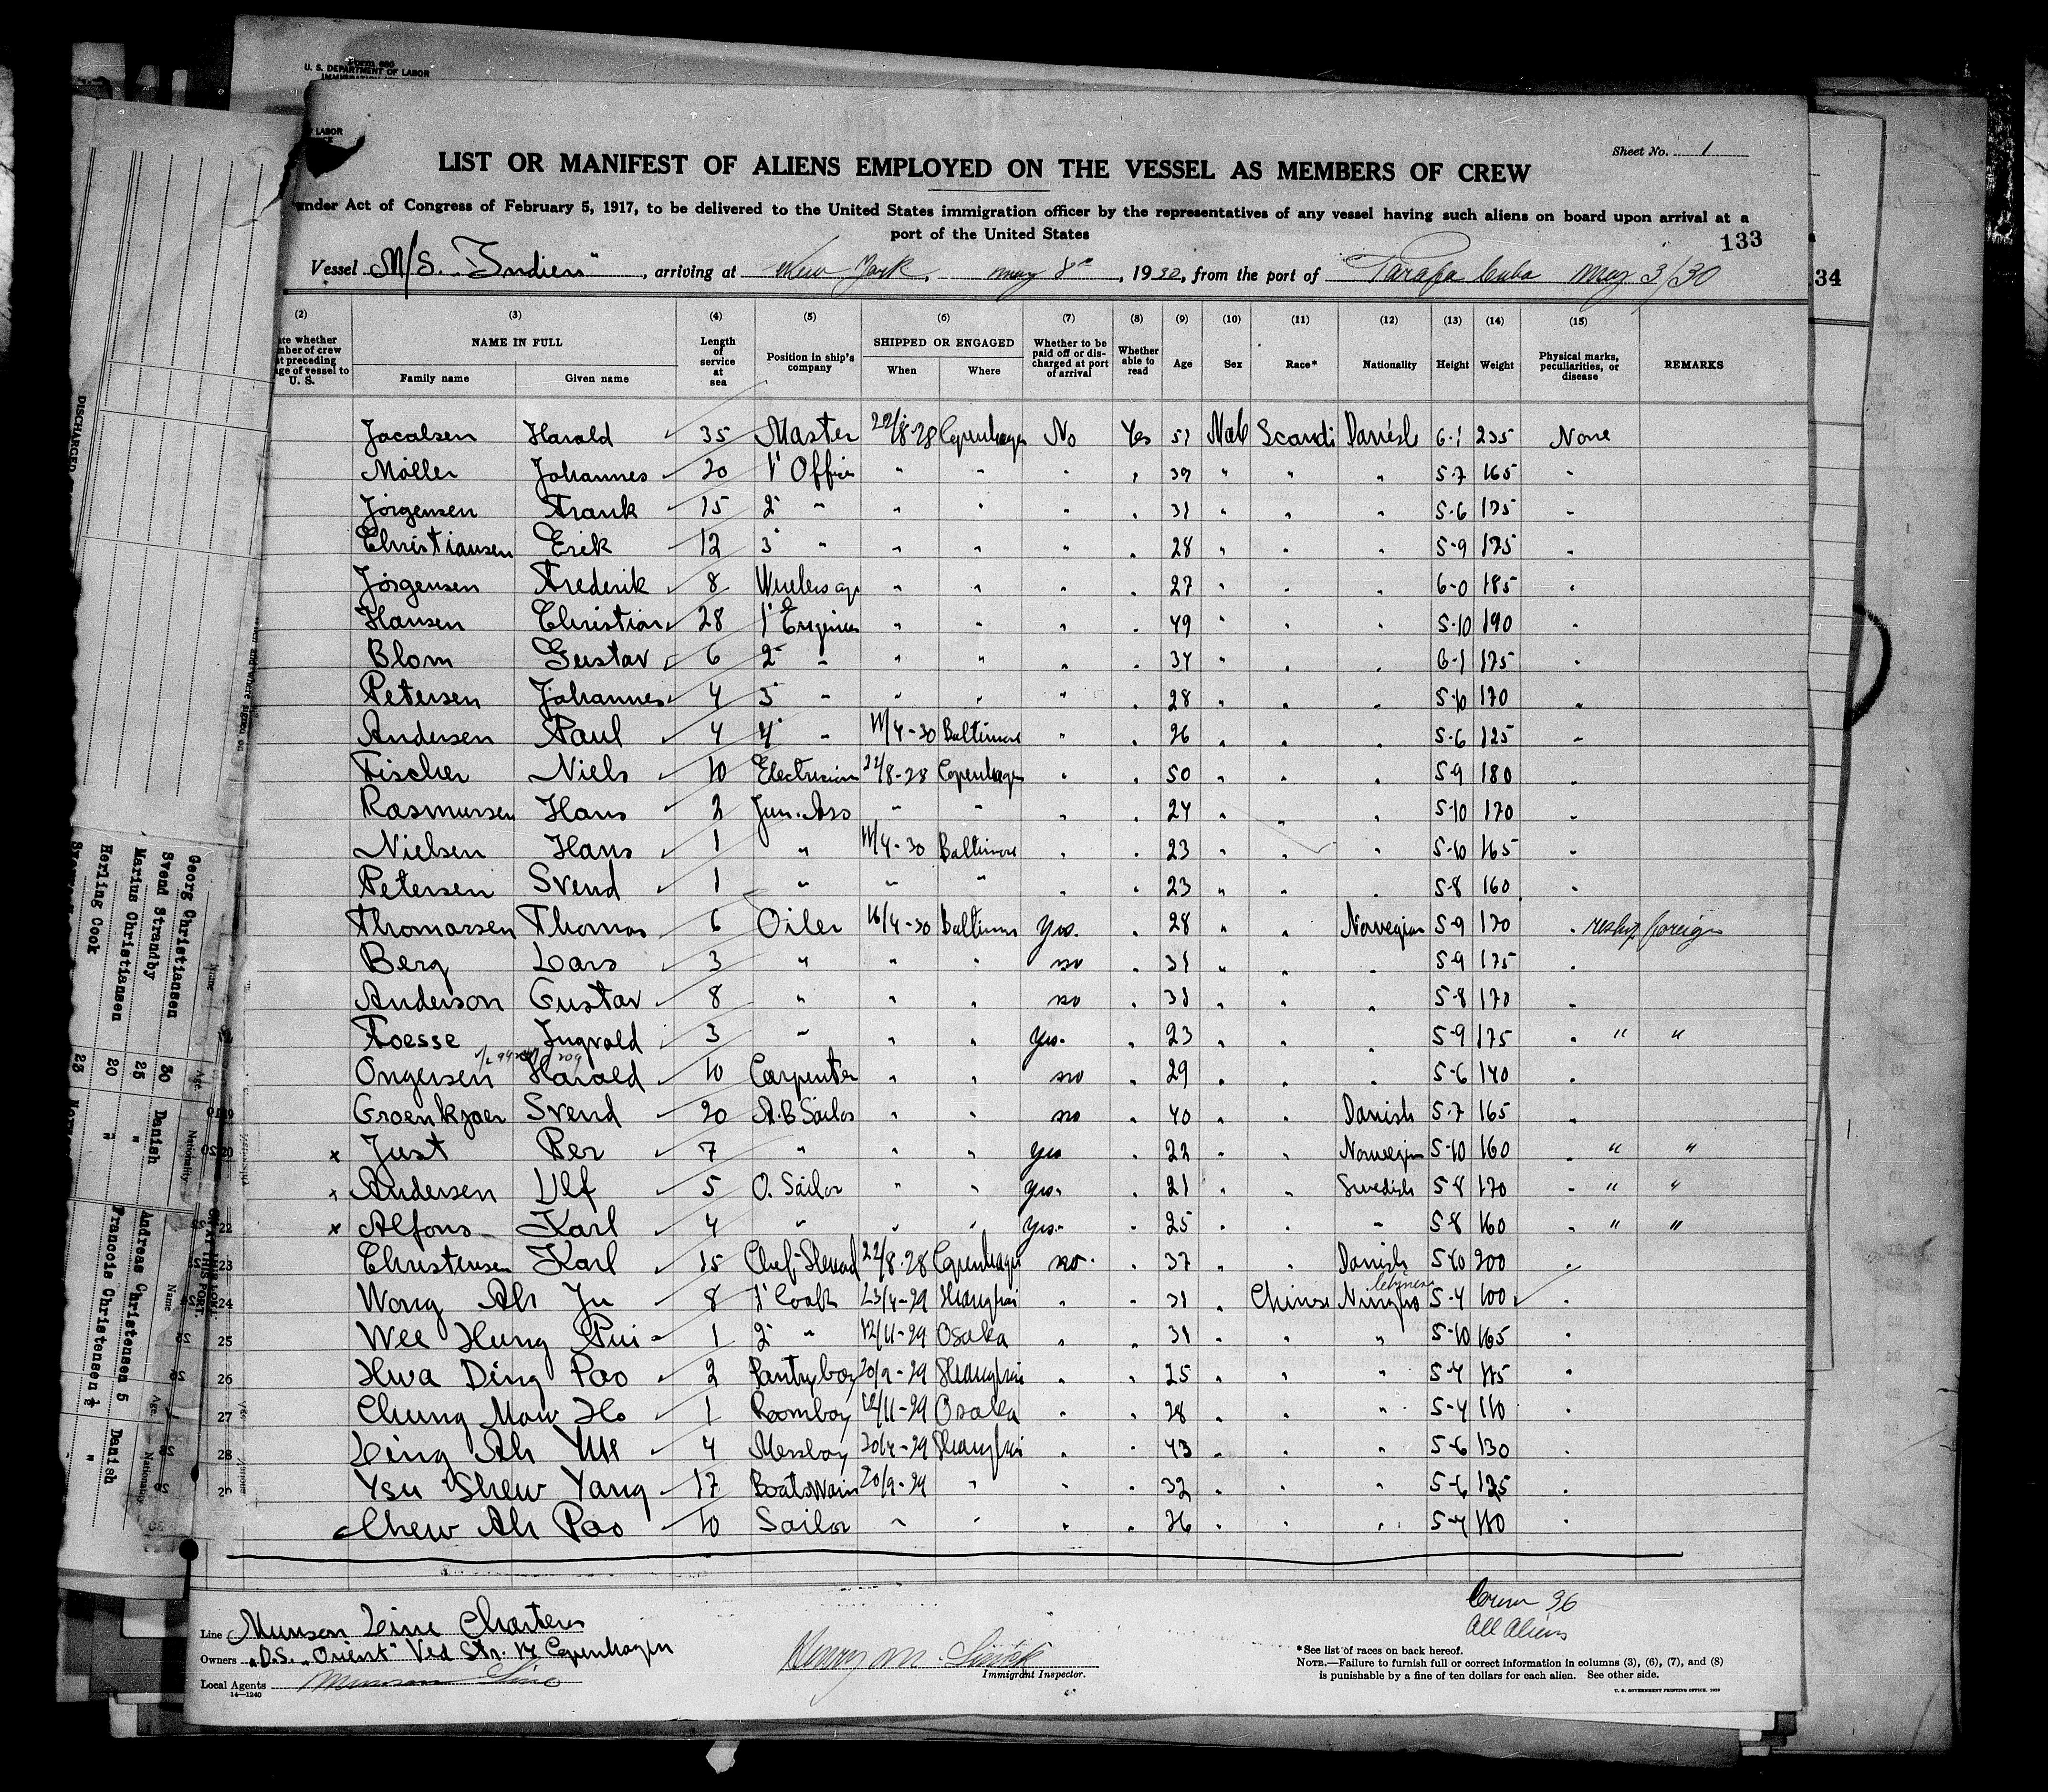 Form 680
U. S. DEPARTMENT OF LABOR
LABOR
Sheet No. 1
LIST OR MANIFEST OF ALIENS EMPLOYED ON THE VESSEL AS MEMBERS OF CREW
under Act of Congress of February 5, 1917, to be delivered to the United States immigration officer by the representatives of any vessel having such aliens on board upon arrival at a
port of the United States
133
Vessel M/S. "Indien", arriving at New York, May 8th, 1930, from the port of Tarafa Cuba May 3/30
34
(2) (3) (4) (5) (6) (7) (8) (9) (10) (11) (12) (13) (14) (15)
NAME IN FULL Length of service at sea Position in ship's company SHIPPED OR ENGAGED Whether to be paid off or discharged at port of arrival Whether able to read Age Sex Race* Nationality Height Weight Physical marks, peculiarities, or disease REMARKS
Family name Given name When Where
Jacobsen Harald 35 Master 22/8-28 Copenhagen No Yes 51 Male Scandi Danish 6-1 235 None
Möller Johannes 20 1' Officer " " " " 39 " " " 5-7 165 "
Jörgensen Frank 15 2' " " " " " 31 " " " 5-6 175 "
Christiansen Erik 12 3' " " " " " 28 " " " 5-9 175 "
Jörgensen Frederik 8 Wireless op " " " " 27 " " " 6-0 185 "
Hansen Christian 28 1' Engineer " " " " 49 " " " 5-10 190 "
Blom Gustav 6 2' " " " " " 34 " " " 6-1 175 "
Petersen Johannes 4 3' " " " " " 28 " " " 5-10 170 "
Andersen Paul 4 4' " 11/4-30 Baltimore " " 26 " " " 5-6 125 "
Fischer Niels 10 Electrician 22/8-28 Copenhagen " " 50 " " " 5-9 180 "
Rasmussen Hans 2 Jun. Ass " " " " 24 " " " 5-10 170 "
Nielsen Hans 1 " 11/4-30 Baltimore " " 23 " " " 5-10 165 "
Petersen Svend 1 " " " " " 23 " " " 5-8 160 "
Thomassen Thomas 6 Oiler 16/4-30 Baltimore Yes. " 28 " " Norwegian 5-9 170 " reship foreign
Berg Lars 3 " " " no " 31 " " " 5-9 175 "
Anderson Gustav 8 " " " no " 31 " " " 5-8 170 "
Foesse Ingvald 3 " " " Yes. " 23 " " " 5-9 175 " " "
Ongersen Harald 10 Carpenter " " no " 29 " " " 5-6 140 "
Groenkjaer Svend 20 A.B Sailor " " no " 40 " " Danish 5-7 165 "
x Just Per 7 " " " yes " 22 " " Norwegian 5-10 160 " " "
x Andersen Ulf 5 O. Sailor " " Yes. " 21 " " Swedish 5-8 170 " " "
22 x Alfons Karl 4 " " " Yes. " 25 " " " 5-8 160 " " "
23 Christensen Karl 15 Chef-Steward 22/8-28 Copenhagen no. " 37 " " Danish 5-10 200 "
24 Wong Ah Ju 8 1' Cook 23/4-29 Shanghai " " 31 " Chinese Ningpo Chinese 5-4 100 "
25 Wee Hung Pui 1 2' " 12/11-29 Osaka " " 31 " " " 5-10 165 "
26 Hwa Ding Pao 2 Pantryboy 20/9-29 Shanghai " " 25 " " " 5-4 115 "
27 Chung Mow Ho 1 Roomboy 12/11-29 Osaka " " 28 " " " 5-4 110 "
28 Ling Ah Mee 4 Messboy 20/4-29 Shanghai " " 43 " " " 5-6 130 "
29 Ysu Shew Yang 17 Boatswain 20/9-29 " " " 32 " " " 5-6 125 "
Chew Ah Pao 10 Sailor " " " " 26 " " " 5-4 110 "
Crew 36
All Aliens
Line Munson Line Charters
Owners "D.S. "Orient" Ved Str. 17 Copenhagen
Local Agents Munson Line
14—1240
Henry M.
Immigrant Inspector.
*See list of races on back hereof.
NOTE.—Failure to furnish full or correct information in columns (3), (6), (7), and (8)
is punishable by a fine of ten dollars for each alien. See other side.
U. S. GOVERNMENT PRINTING OFFICE, 1929
DISCHARGED
Name Age. Nationality
Georg Christiansen 30 Danish
Svend Strandby 25 "
Marius Christiansen 20 "
Herling Cook 23
Name Age. Nationality
Andreas Christensen 5 Danish
Francois Christensen ½ "